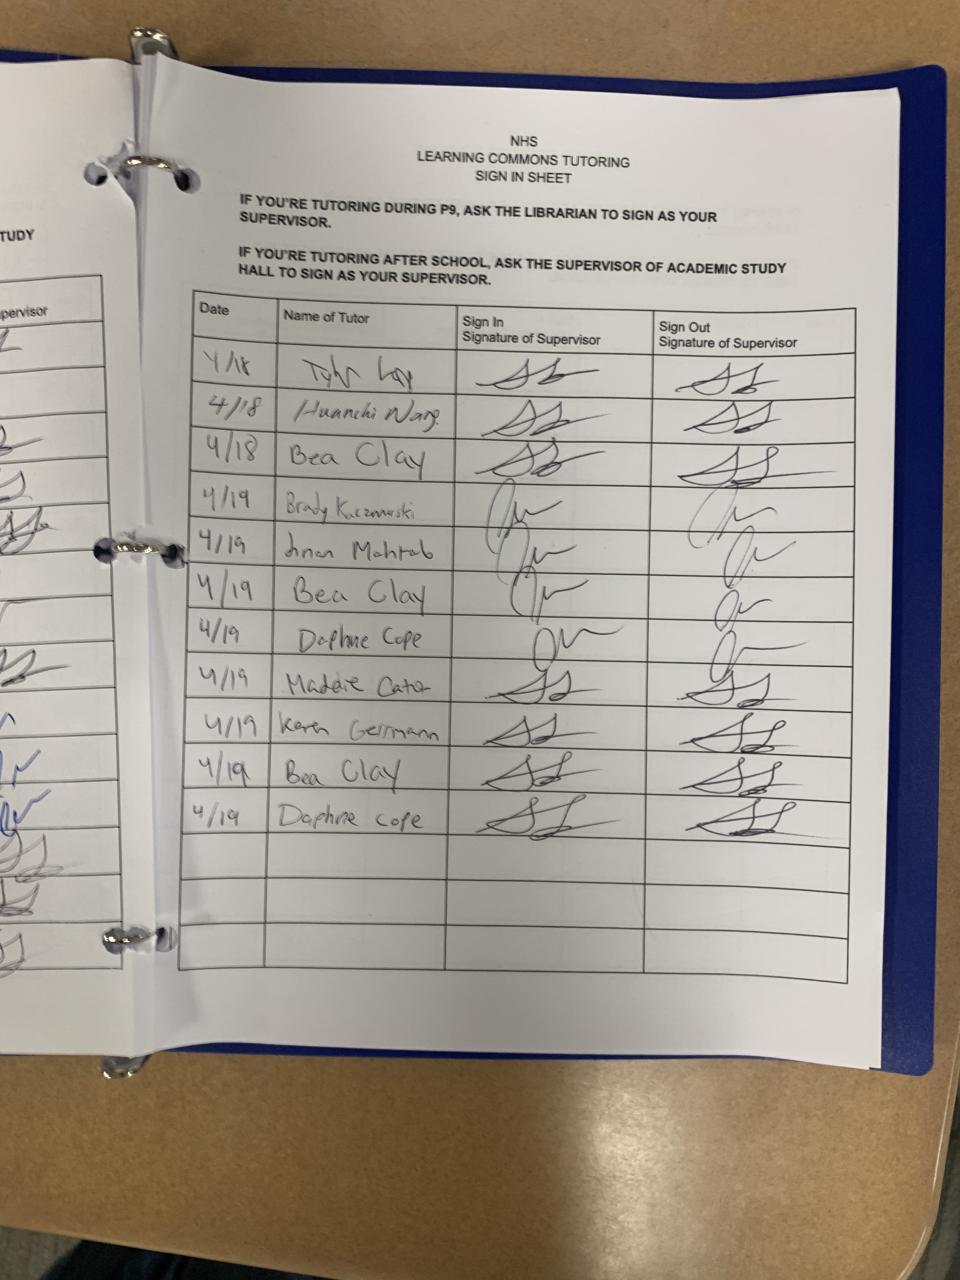 TUDY
pervisor
NHS
LEARNING COMMONS TUTORING
SIGN IN SHEET
IF YOU'RE TUTORING DURING P9, ASK THE LIBRARIAN TO SIGN AS YOUR
SUPERVISOR.
IF YOU'RE TUTORING AFTER SCHOOL, ASK THE SUPERVISOR OF ACADEMIC STUDY
HALL TO SIGN AS YOUR SUPERVISOR.
Date Name of Tutor Sign In Signature of Supervisor Sign Out Signature of Supervisor
4/18
4/18 Huanchi Wang
4/18 Bea Clay
4/19 Brady
4/19 Mahtab
4/19 Bea Clay
4/19 Daphne Cope
4/19 Maddie Cator
4/19 Karen Germann
4/19 Bea Clay
4/19 Daphne Cope